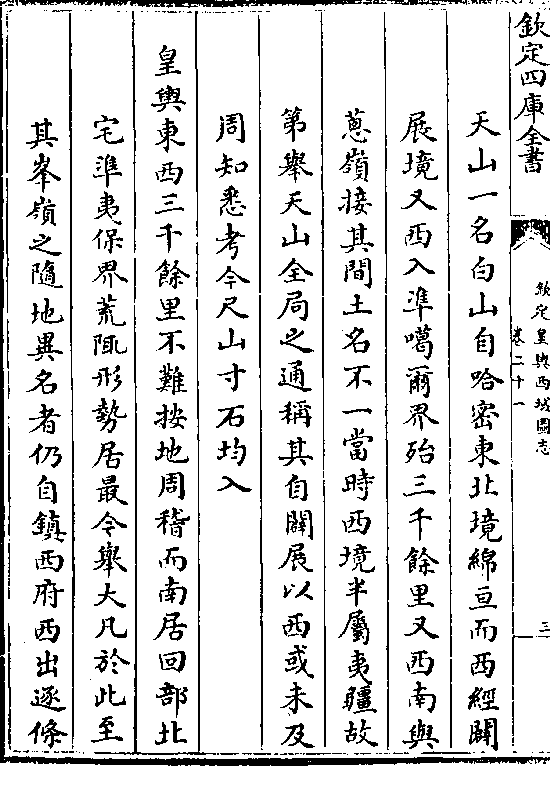 欽定四庫全書
欽定皇輿西域圖志
卷二十一
三
天山一名白山自哈密東北境綿亘而西經闢
展境又西入準噶爾界殆三千餘里又西南與
蔥嶺接其間土名不一當時西境半屬夷疆故
第舉天山全局之通稱其自闢展以西或未及
周知悉考今尺山寸石均入
皇輿東西三千餘里不難按地周稽而南居回部北
宅準夷保界荒陬形勢居最今舉大凡於此至
其峯嶺之隨地異名者仍自鎮西府西出逐條